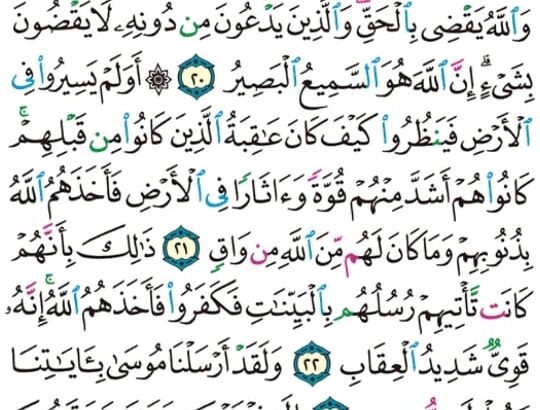 وَٱللَّهُ يَقْضِى بِٱلْحَقِّ وَٱلَّذِينَ يَدْعُونَ مِن دُونِهِۦ لَا يَقْضُونَ
بِشَىْءٍ إِنَّ ٱللَّهَ هُوَ ٱلسَّمِيعُ ٱلْبَصِيرُ ٢٠ ۞ أَوَلَمْ يَسِيرُوا۟ فِى
ٱلْأَرْضِ فَيَنظُرُوا۟ كَيْفَ كَانَ عَـٰقِبَةُ ٱلَّذِينَ كَانُوا۟ مِن قَبْلِهِمْ ۚ
كَانُوا۟ هُمْ أَشَدَّ مِنْهُمْ قُوَّةً وَءَاثَارًا فِى ٱلْأَرْضِ فَأَخَذَهُمُ ٱللَّهُ
بِذُنُوبِهِمْ وَمَا كَانَ لَهُم مِّنَ ٱللَّهِ مِن وَاقٍ ٢١ ذَٰلِكَ بِأَنَّهُمْ
كَانَت تَّأْتِيهِمْ رُسُلُهُم بِٱلْبَيِّنَـٰتِ فَكَفَرُوا۟ فَأَخَذَهُمُ ٱللَّهُ ۚ إِنَّهُۥ
قَوِىٌّ شَدِيدُ ٱلْعِقَابِ ٢٢ وَلَقَدْ أَرْسَلْنَا مُوسَىٰ بِـَٔايَـٰتِنَا